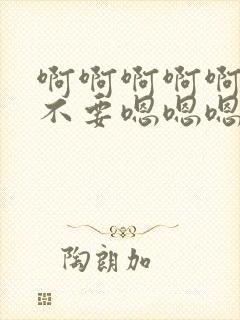 啊啊啊啊啊
不要嗯嗯嗯
陶朗加